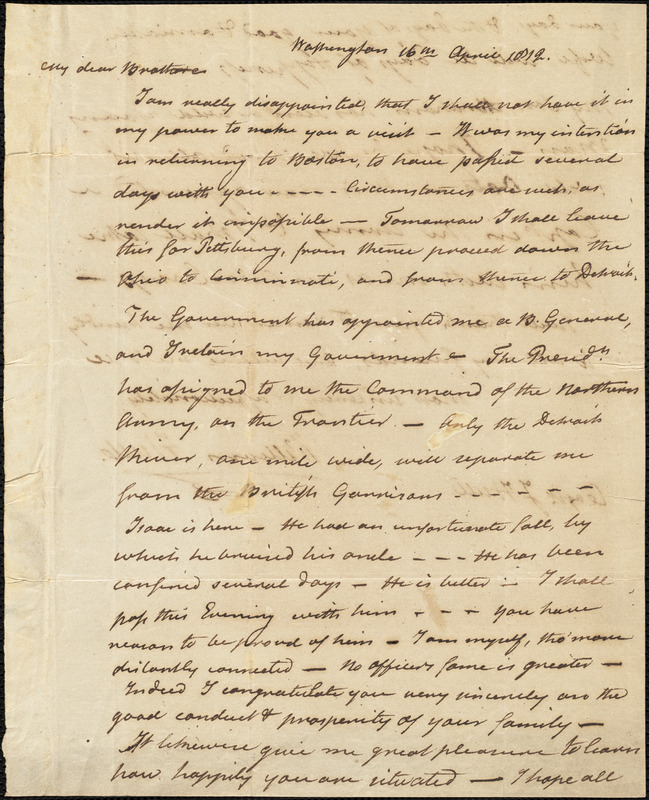 Washington 16th April 1812.
My dear Brother
I am really disappointed, that I shall not have it in
my power to make you a visit — It was my intention
in returning to Boston, to have passed several
days with you - - - - Circumstances are such, as
render it impossible — Tomorrow I shall leave
this for Pittsburg, from thence proceed down the
— Ohio to Cinninnate, and from thence to Detroit.
The Government has appointed me a B. General,
and I retain my Government — The Presidt
has assigned to me the Command of the Northern
Army, on the Frontier. — Only the Detroit
River, one mile wide, will separate me
from the British Garrisons - - - -
Isaac is here — He had an unfortunate fall, by
which he bruised his ancle - - - He has been
confined several days — He is better — I shall
pass this Evening with him - - - you have
reason to be proud of him — I am myself, tho' more
distantly connected — No officer's fame is greater —
Indeed I congratulate you very sincerely on the
good conduct & prosperity of your family —
It likewise give me great pleasure to learn
how happily you are situated — I hope all